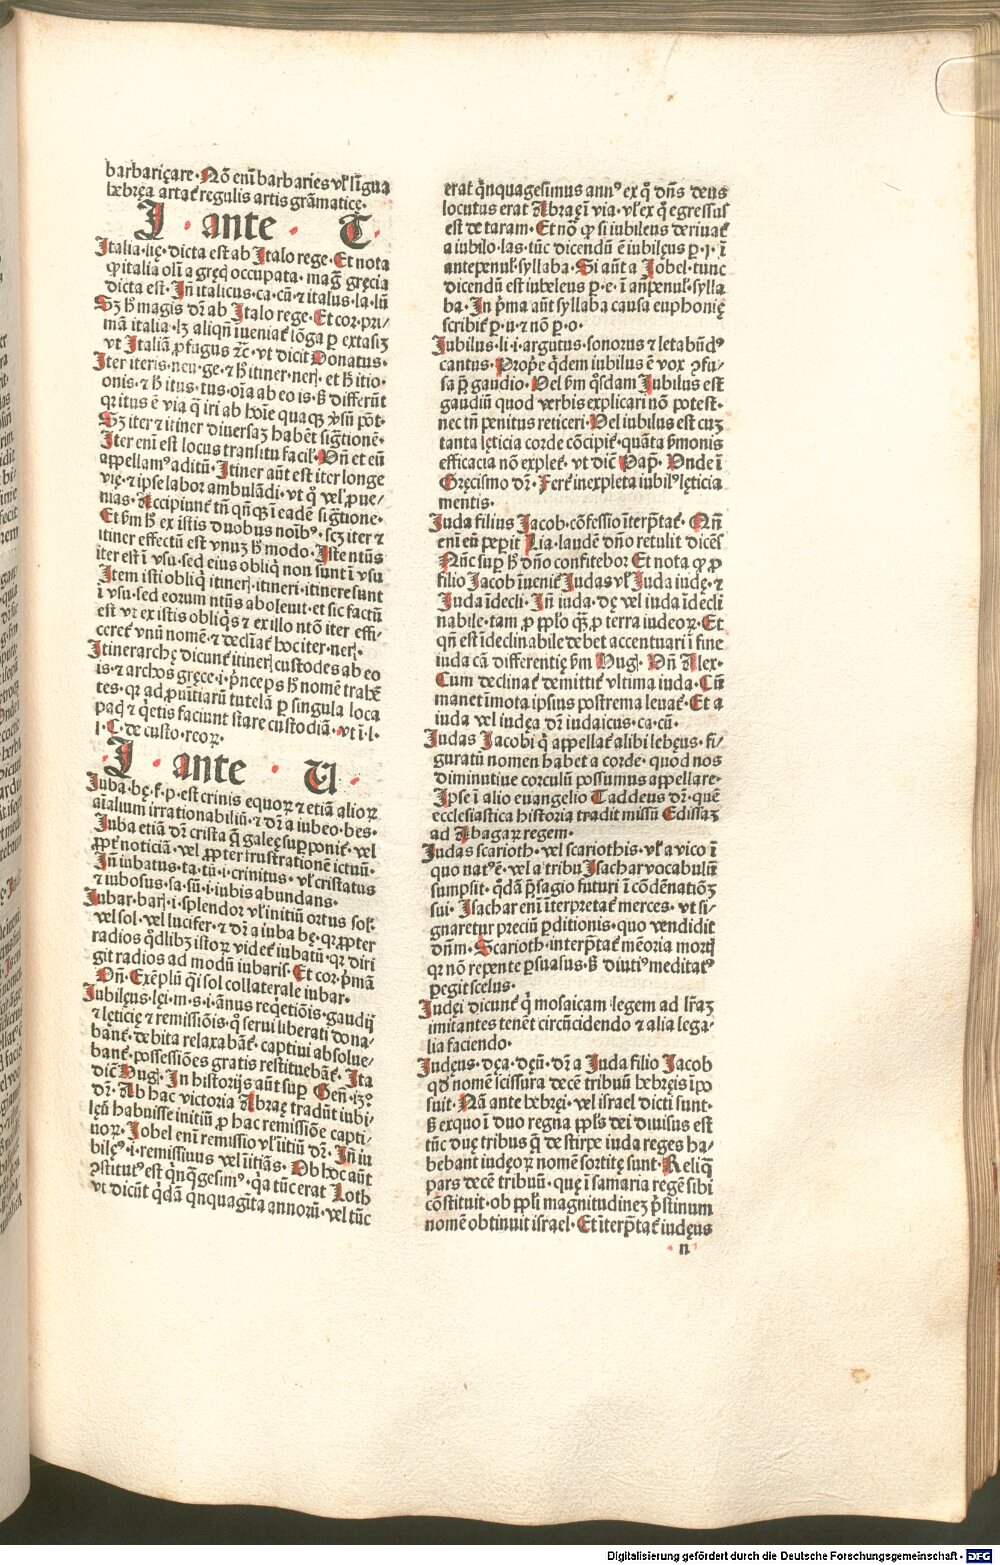 barbariçare. Nõ eni᷈ barbaries vł li᷈gua
hebręa artat᷑ regulis artis grãmaticę.
I ante T
Italia.lię. dicta est ab Italo rege. Et nota
ꝙ italia oli᷈ a gręcꝭ occupata. mag᷈ gręcia
dicta est. In᷈ italicus.ca.cũ. ⁊ italus.la.lũ
Sꝫ h᷒ magis dr᷈ ab Italo rege. Et cor. pri/
mã italia. lꝫ aliqñ iueniat᷑ lõga ꝑ extasiꝫ
vt Italiã ꝓfugus ⁊c̃. vt dicit Donatus.
Iter iteris. neu. ge. ⁊ h᷒ itiner. nerꝭ. et h᷒ itio.
onis. ⁊ h᷒ itus. tus. oi᷈a ab eo is. s᷒ differũt
qꝛ itus ẽ via q̃ iri ab hoi᷈e quaqꝫ ꝟsũ põt.
Sꝫ iter ⁊ itiner diuersaꝫ habẽt sig᷈tionẽ.
Iter eni᷈ est locus transitu facił. Vñ et eũ
appellamꝰ aditũ. Itiner aũt est iter longe
vię. ⁊ ipse labor ambulãdi. vt qͦ vel᷈ ꝓue/
nias. Accipiunt᷑ tñ qñqꝫ i᷈ eadẽ sig᷈tione.
Et ẜm h᷒ ex istis duobus noi᷈bꝰ. scꝫ iter ⁊
itiner effectũ est vnuꝫ h᷒ modo. Iste ntũs
iter est i᷈ vsu. sed eius obliqͥ non sunt i᷈ vsu
Item isti obliqͥ itinerꝭ. itineri. itinere sunt
i᷈ vsu. sed eorum ntũs aboleuit. et sic factũ
est vt ex istis obliqͥs ⁊ ex illo ntõ iter effi/
ceret᷑ vnũ nomẽ. ⁊ declinat᷑ hoc iter. nerꝭ.
Itinerarchę dicunt᷑ itinerꝭ custodes ab eo
is. ⁊ archos gręce. i. pͥnceps h᷒ nomẽ trahẽ
tes. qꝛ ad ꝓuintiarũ tutelã ꝑ singula loca
pacꝭ ⁊ qͥetis faciunt stare custodiã. vt i᷈.l.
i. C. de custo. reoꝝ.
I ante U
Iuba.bę.f.p. est crinis equoꝝ ⁊ etiã alioꝝ
ai᷈alium irrationabiliũ. ⁊ dr᷈ a iubeo.bes.
Iuba etiã dr᷈ crista q̃ galeę suꝑponit᷑. vel
ꝓpt᷑ noticiã. vel ꝓpter frustrationẽ ictuũ.
In᷈ iubatus.ta.tũ. i. crinitus. vł cristatus
⁊ iubosus.sa.sũ. i. iubis abundans.
Iubar. barꝭ. i. splendor vł initiũ ortus solꝭ.
vel sol. vel lucifer. ⁊ dr᷈ a iuba bę. qꝛ ꝓpter
radios qͦdlibꝫ istoꝝ videt᷑ iubatũ. qꝛ diri
git radios ad modũ iubaris. Et cor. pͥmã
Vñ. Exẽplũ qͥ i᷈ sol collaterale iubar.
Iubilęus.lęi.m.s. i. ãnus reqͥetiõis. gaudij
⁊ lęticię ⁊ remissiõis. qͦ serui liberati dona/
bãt᷑. debita relaxabãt᷑. captiui absolue/
bãt᷑. possessiões gratis restituebãt᷑. Ita
dic᷑ Hugꝭ. In historijs aũt suꝑ Geñ. Iꝫͦ
dr᷈. Ab hac victoria Abraę tradũt iubi/
lęũ habuisse initiũ ꝓ hac remissiõe capti/
uoꝝ. Iobel eni᷈ remissio vł i᷈itiũ dr᷈. In᷈ iu
bilęꝰ. i. remissiuus vel i᷈itiãs. Ob hoc aũt
ꝯstitutꝰ est qͥnqͣgesimꝰ. qꝛa tũc erat Loth
vt dicũt qͥdã qͥnquagi᷈ta annorũ. vel tũc
erat qͥnquagesimus annꝰ ex qͦ dñs deus
locutus erat Abraę i᷈ via. vł ex qͦ egressus
est de taram. Et noͣ ꝙ si iubileus deriuat᷑
a iubilo.las. tũc dicendũ ẽ iubilęus ꝑ.i. i᷈
antepenuł. syllaba. Si aũt a Iobel. tunc
dicendũ est iubeleus ꝑ.e. i᷈ an᷈penuł. sylla
ba. In pͥma aũt syllaba causa euphonię
scribit᷑ ꝑ.u. ⁊ nõ ꝑ.o.
Iubilus.li. i. argutus. sonorus ⁊ letabũdꝰ
cantus. Propͥe qͥdem iubilus ẽ vox ꝯfu/
sa p᷒ gaudio. Vel ẜm qͦsdam Iubilus est
gaudiũ quod verbis explicari nõ potest.
nec tñ penitus reticeri. Vel iubilus est cuꝫ
tanta lęticia corde cõcipit᷑. quãta ẜmonis
efficacia nõ explet᷑. vt dic᷑ Papͥ. Vnde i᷈
Gręcismo dr᷈. Fert᷑ inexpleta iubilꝰ lęticia
mentis.
Iuda filius Iacob. cõfessio i᷈terp̃tat᷑. Nã
eni᷈ eũ peperit Lia. laudẽ dño retulit dicẽs
Nũc suꝑ h᷒ dño confitebor Et nota ꝙ ꝓ
filio Iacob i᷈uenit᷑ Iudas vł Iuda iudę. ⁊
Iuda i᷈decli. In᷈ iuda. dę vel iuda i᷈decli
nabile. tam ꝓ pp̃lo qͣꝫ ꝓ terra iudeoꝝ. Et
qñ est i᷈declinabile debet accentuari i᷈ fine
iuda cã differentię ẜm Hugꝭ. Vñ Alex.
Cum declinat᷑ demittit᷑ vltima iuda. Cũ
manet i᷈mota ipsius postrema leuat᷑. Et a
iuda vel iudęa dr᷈ iudaicus.ca.cũ.
Iudas Iacobi qͥ appellat᷑ alibi lebęus. fi/
guratũ nomen habet a corde. quod nos
diminutiue corculũ possumus appellare.
Ipse i᷈ alio euangelio Taddeus dr᷈. quẽ
ecclesiastica historia tradit missũ Edissaꝫ
ad Abagaꝝ regem.
Iudas scarioth. vel scariothis. vł a vico i᷈
quo natꝰ ẽ. vel a tribu Isachar vocabulũ
sumpsit. qͦdã p̃sagio futuri i᷈ cõdẽnatiõꝫ
sui. Isachar eni᷈ i᷈terpretat᷑ merces. vt si/
gnaretur preciũ ꝑditionis. quo vendidit
dñm. Scarioth. interp̃tat᷑ mẽoria mortꝭ
qꝛ nõ repente ꝑsuasus. s᷒ diutiꝰ meditatꝰ
ꝑegit scelus.
Iudęi dicunt᷑ qͥ mosaicam legem ad lr᷈aꝫ
imitantes tenẽt circũcidendo ⁊ alia lega/
lia faciendo.
Iudęus. dęa. dęũ. dr᷈ a Iuda filio Iacob
qd᷒ nomẽ scissura decẽ tribuũ hebręis i᷈po
suit. Nã ante hebręi. vel israel dicti sunt.
s᷒ exquo i᷈ duo regna pp̃ls dei diuisus est
tũc duę tribus q̃ de stirpe iuda reges ha/
bebant iudęoꝝ nomẽ sortitę sunt. Reliqͣ
pars decẽ tribuũ. quę i᷈ samaria regẽ sibi
cõstituit. ob pp̃li magnitudineꝫ pͥstinum
nomẽ obtinuit israel. Et i᷈terp̃tat᷑ iudęus
n
Digitalisierung gefördert durch die Deutsche Forschungsgemeinschaft - DFG